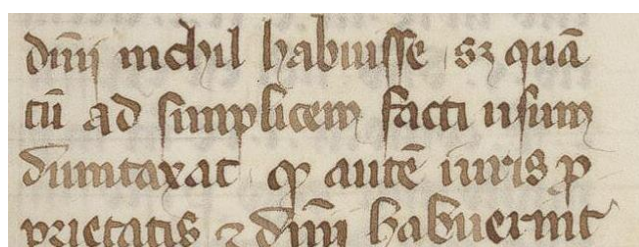 dnīj nichil habuisse sꝫ quā
tū ad simplicem facti usum
dumtaxat qꝫ autē iuris p
prietatis ⁊ dnīj habuerint